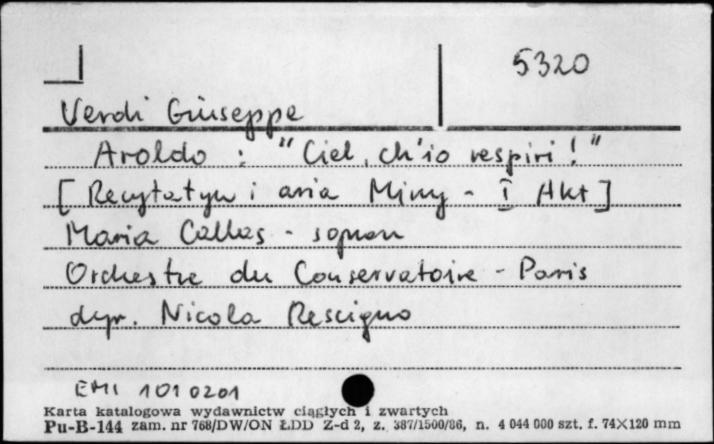 5320
Verdi Giuseppe
Aroldo : "Ciel, ch'io respiri!"
[Recytatyw i aria Miny - I Akt]
Maria Callas - sopran
Orchestre du Conservatoire - Paris
dyr. Nicola Rescigno
EMI 101 0201
Karta katalogowa wydawnictw ciągłych i zwartych
Pu-B-144 zam. nr 768/DW/ON ŁDD Z-d 2, z. 387/1500/86, n. 4 044 000 szt. f. 74×120 mm